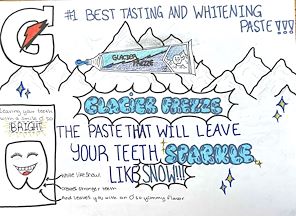 #1 BEST TASTING AND WHITENING
PASTE!!!
G
GLACIER FREZZE
GLACIER FREZZE
Leaving your teeth
with a smile of so
BRIGHT
THE PASTE THAT WILL LEAVE
YOUR TEETH SPARKLE
LIKE SNOW!!!
White like Snow!
stronger teeth
And leaves you with an O so yummy flavor